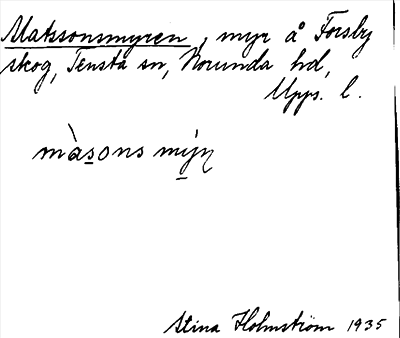 Matssonsmyren, myr å Forsby
skog, Tensta sn, Norunda hd,
Upps. l.
màsons mýɳ
Stina Holmström 1935